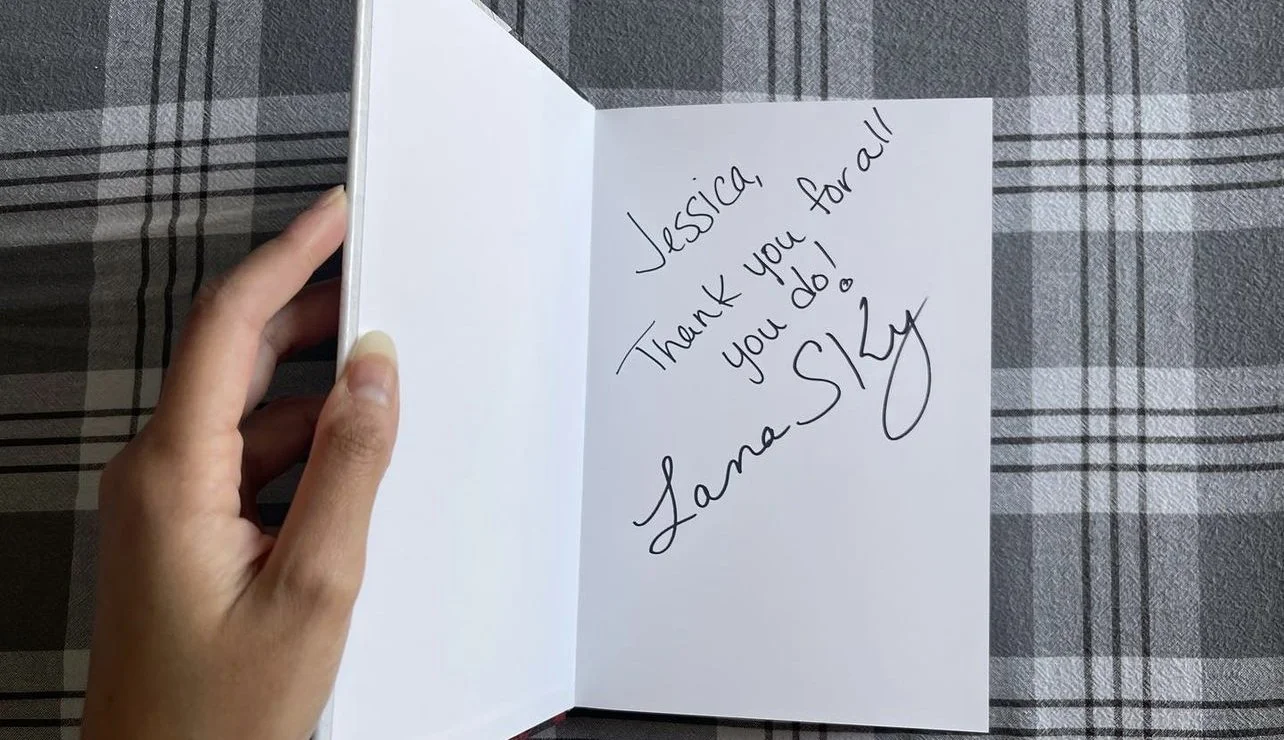 Jessica,
Thank you for all
you do!
Lana Sky